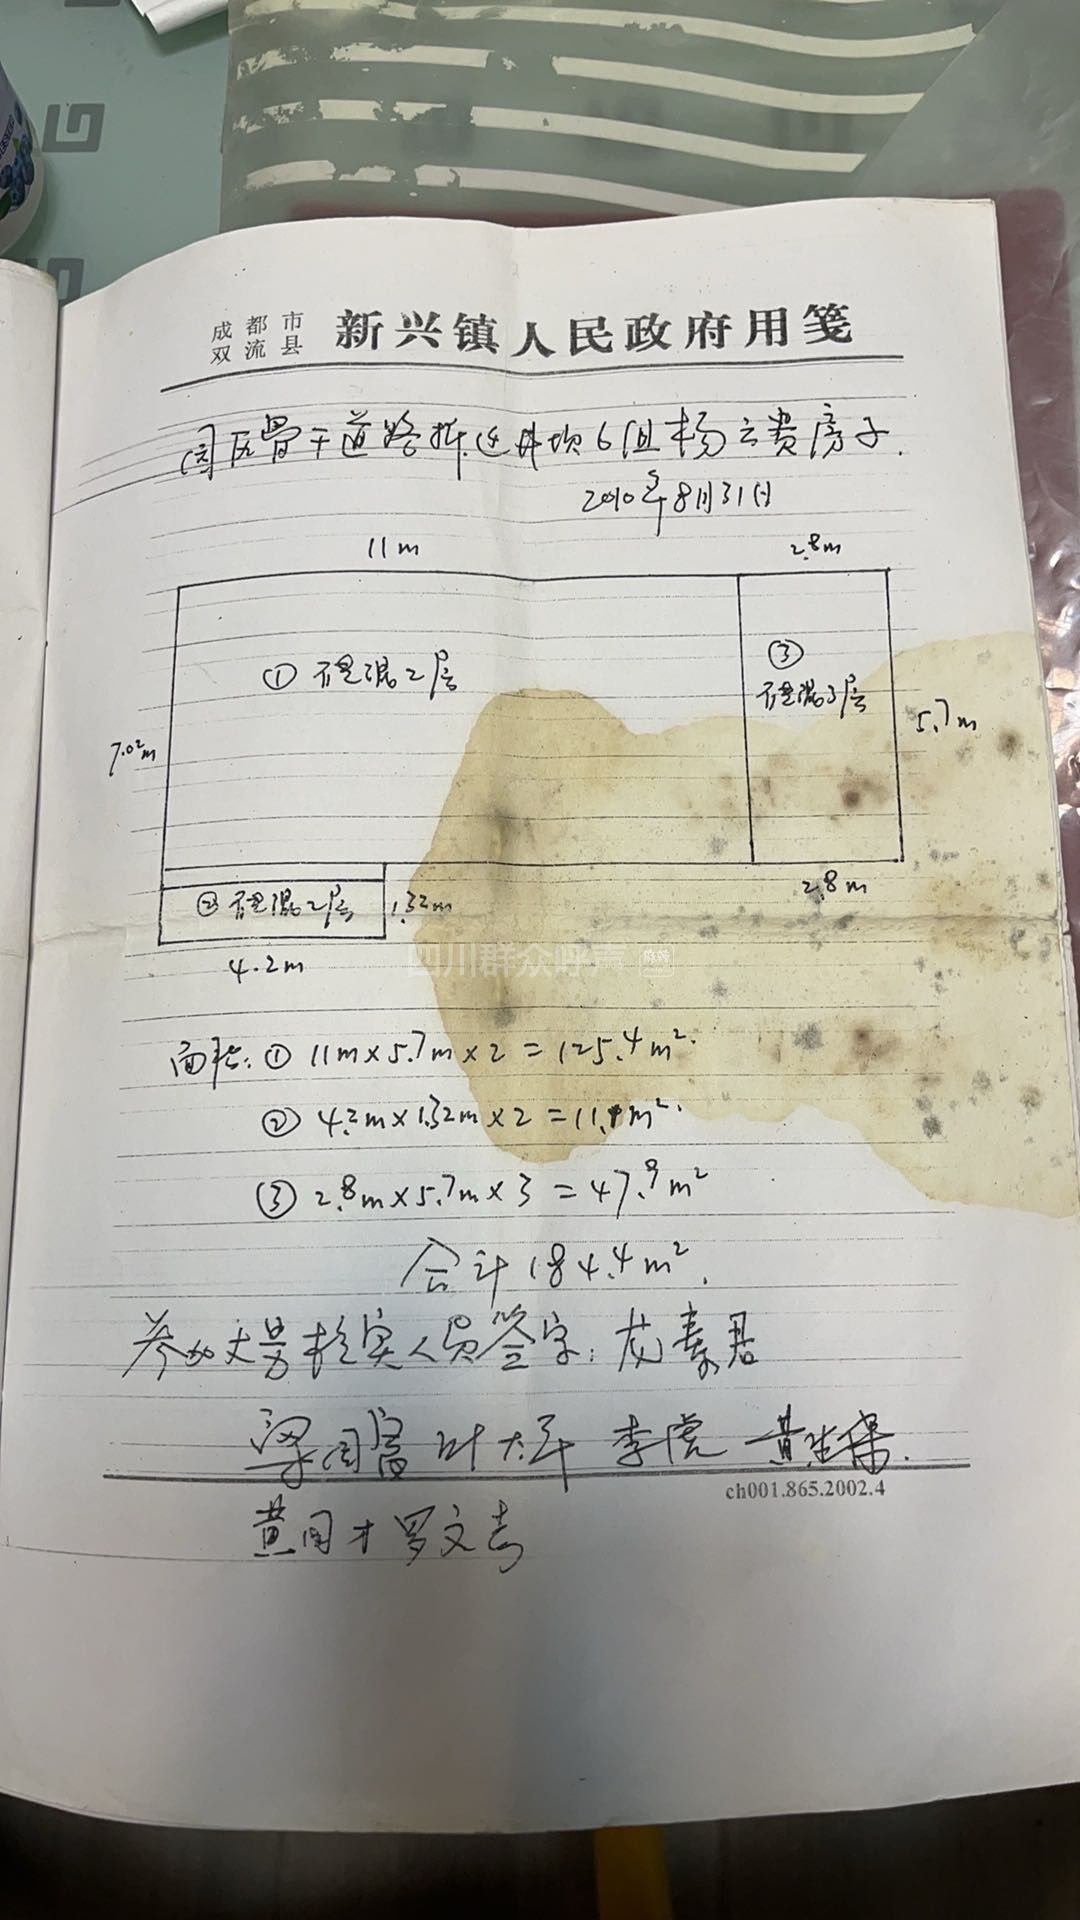 成都市
双流县 新兴镇人民政府用笺
园区骨干道路拆迁井坝6组杨云贵房子.
2010年8月31日
11m 2.8m
① 砖混2层
③
砖混3层
7.02m
5.7m
2.8m
② 砖混2层 1.32m
4.2m
四川群众呼声
面积: ① 11m×5.7m×2=125.4m².
② 4.2m×1.32m×2=11.1m².
③ 2.8m×5.7m×3=47.9m²
合计184.4m².
参加丈量核实人员签字: 龙素君
叶大平 李虎
黄国才 罗文
ch001.865.2002.4